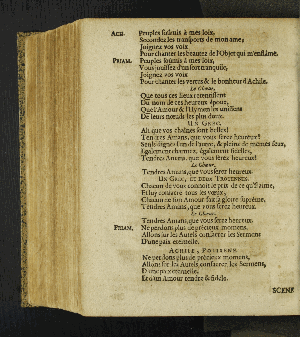 ACH. Peuples soûmis à mes loix,
Secondez les transports de mon ame,
Joignez vos voix
Pour chanter les beautez de l'Objet qui m'enflâme.
PRIAM. Peuples soûmis à mes loix,
Vous jouïssez d'un sort tranquile,
Joignez vos voix
Pour chanter les vertus & le bonheur d'Achile.
Le Chœur,
Que tous ces lieux retentissent
Du nom de ces heureux époux,
Que l'Amour & l'Hymen les unissent
De leurs nœuds les plus doux.
UN GREC.
Ah que vos chaînes sont belles!
Tendres Amans, que vous serez heureux!
également charmez, également fidelles,
Tendres Amans, que vous serez heureux!
Le Chœur,
Tendres Amans, que vous serez heureux.
UN GREC, ET DEUX TROYENNES.
Chacun de vous connoît le prix de ce qu'il aime,
Et luy consacre tous les vœux,
Chacun de son Amour fait sa gloire suprême,
Tendres Amans, que vous serez heureux.
Le Chœur,
Tendres Amans, que vous serez heureux.
PRIAM. Ne perdons plus de précieux momens,
Allons sur les Autels consacrer les Sermens
D'une paix eternelle.
ACHILE, POLIXENE.
Ne perdons plus de précieux momens,
Allons sur les Autels consacrer les Sermens,
D'une paix eternelle,
Et d'un Amour tendre & fidele.
SCENE